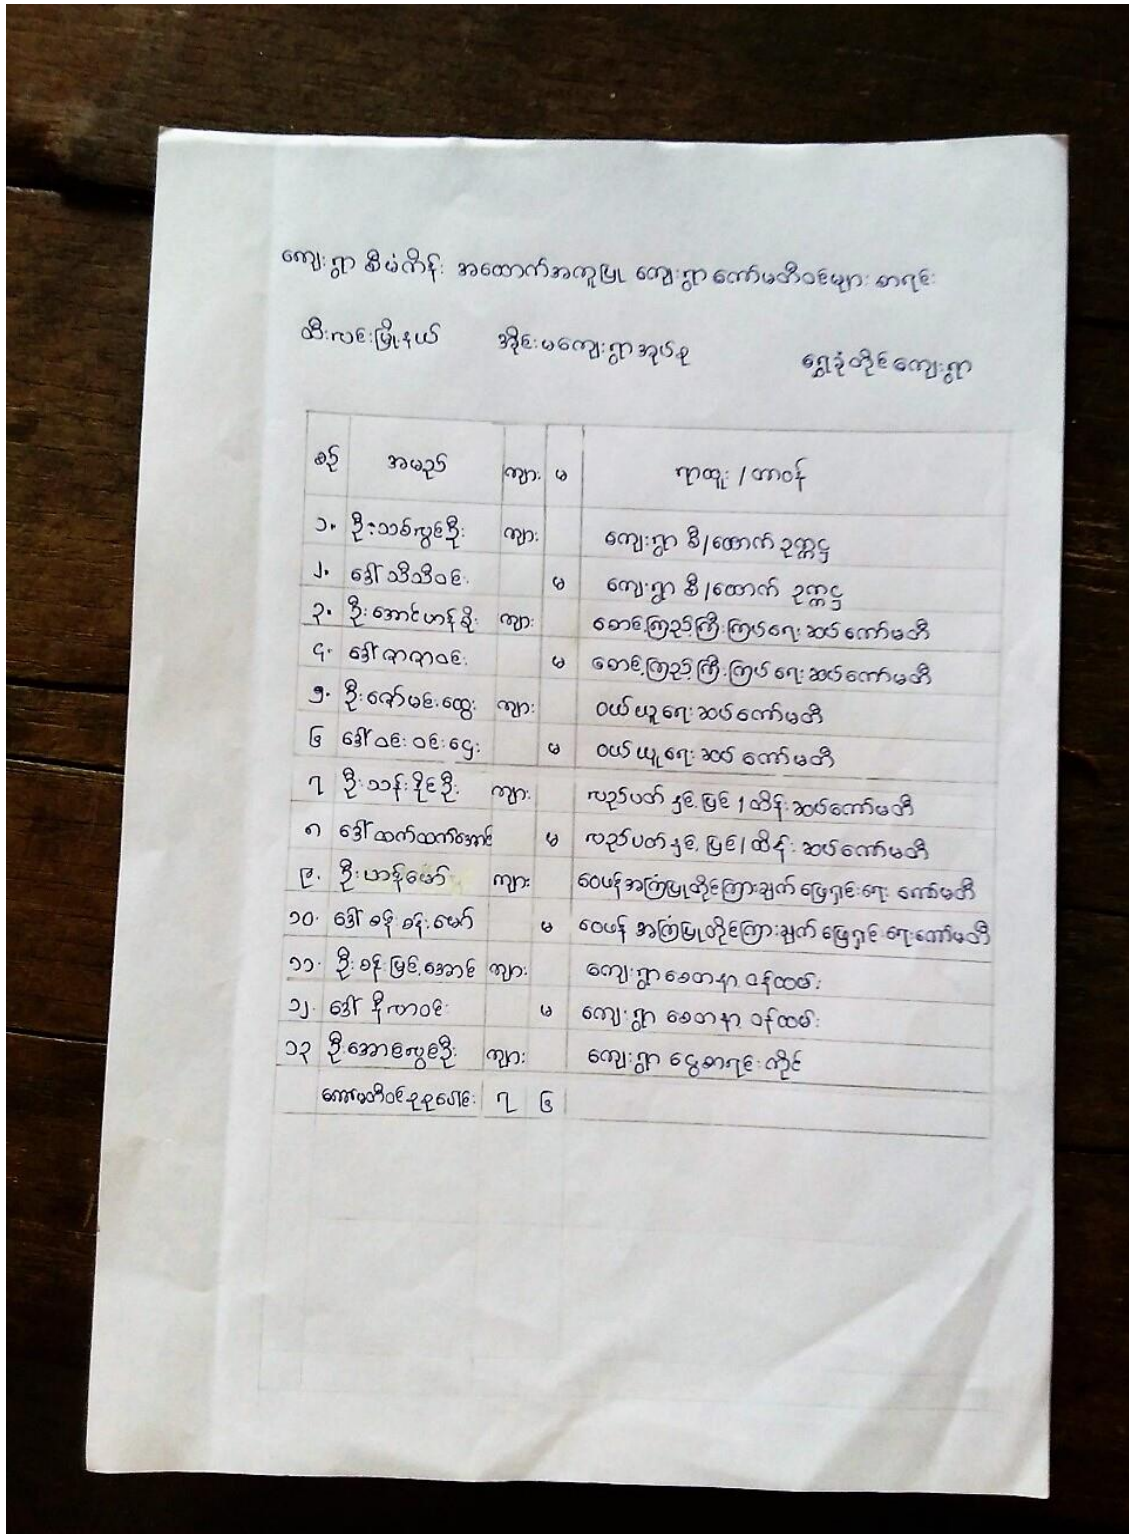 ကျေးရွာ စီမံကိန်း အထောက်အကူပြု ကျေးရွာ ကော်မတီဝင်များ စာရင်း
ထီးလင်းမြို့နယ် အိုင်းမကျေးရွာအုပ်စု ရွှေခုံတိုင်ကျေးရွာ
စဉ် အမည် ကျား မ ရာထူး / တာဝန်
၁. ဦးသစ်လွင်ဦး ကျား ကျေးရွာ စီ/ထောက် ဥက္ကဋ္ဌ
၂. ဒေါ်သီသီဝင်း မ ကျေးရွာ စီ/ထောက် ဥက္ကဋ္ဌ
၃. ဦးအောင်ဟန်စိုး ကျား စောင့်ကြည့်ကြီးကြပ်ရေး ဆပ်ကော်မတီ
၄. ဒေါ်ဇာဇာဝင်း မ စောင့်ကြည့်ကြီးကြပ်ရေး ဆပ်ကော်မတီ
၅. ဦးဇော်မင်းထွေး ကျား ဝယ်ယူရေး ဆပ်ကော်မတီ
၆ ဒေါ်ဝင်းဝင်းဌေး မ ဝယ်ယူရေး ဆပ်ကော်မတီ
၇ ဦးသန်းနိုင်ဦး ကျား လည်ပတ်နှင့်ပြင်/ထိန်းဆပ်ကော်မတီ
၈ ဒေါ်ထက်ထက်အောင် မ လည်ပတ်နှင့်ပြင်/ထိန်းဆပ်ကော်မတီ
၉. ဦးဟန်မော် ကျား ဝေဖန်အကြံပြုတိုင်ကြားချက်ဖြေရှင်းရေး ကော်မတီ
၁၀. ဒေါ်စန်းစန်းမော် မ ဝေဖန်အကြံပြုတိုင်ကြားချက်ဖြေရှင်းရေးကော်မတီ
၁၁. ဦးစန်းမြင့်အောင် ကျား ကျေးရွာစေတနာ့ ဝန်ထမ်း
၁၂. ဒေါ်နီလာဝင်း မ ကျေးရွာ စေတနာ့ ဝန်ထမ်း
၁၃ ဦးအောင်လွင်ဦး ကျား ကျေးရွာ ငွေစာရင်းကိုင်
ကော်မတီဝင်စုစုပေါင်း ၇ ၆